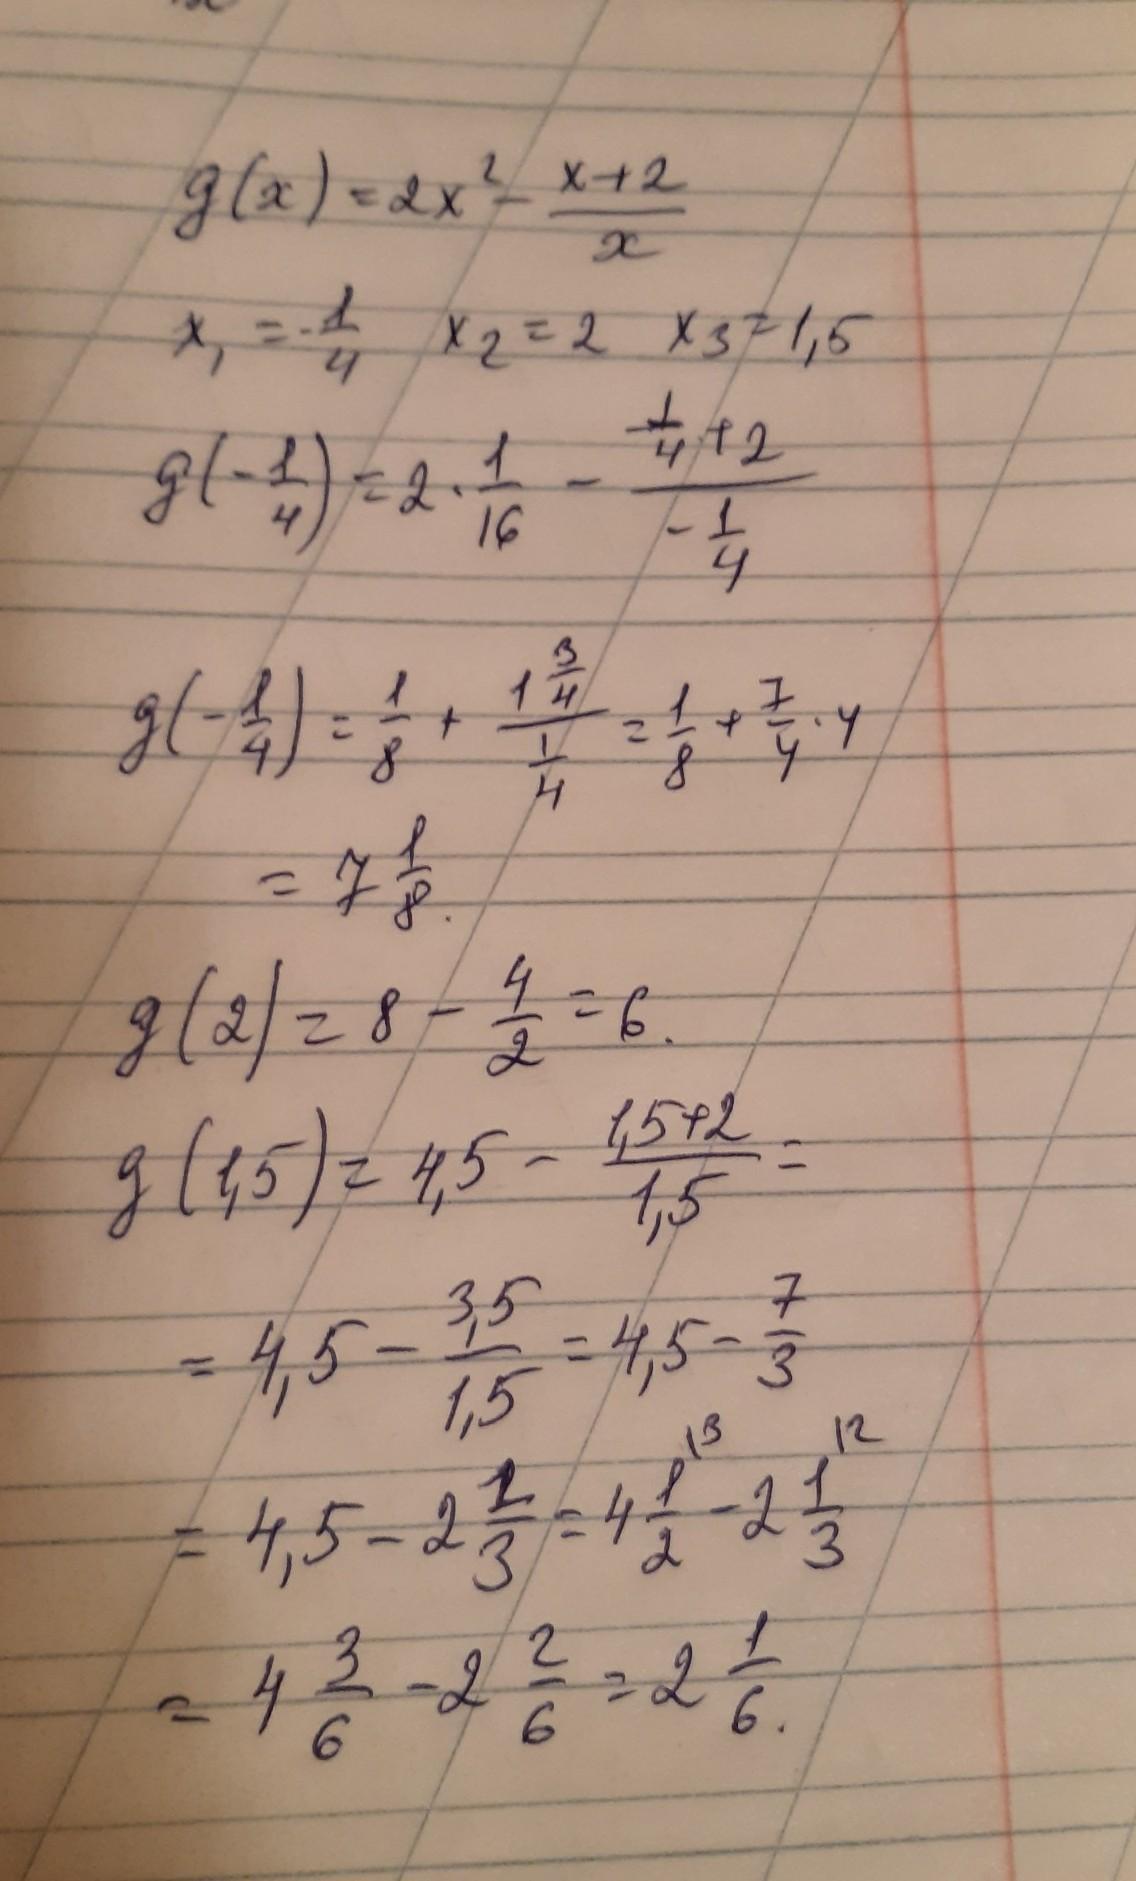 g(x) = 2x² - (x+2)/x
x₁ = -1/4 x₂ = 2 x₃ = 1,5
g(-1/4) = 2 · 1/16 - (-1/4 + 2)/(-1/4)
g(-1/4) = 1/8 + (1 3/4)/(1/4) = 1/8 + 7/4 · 4
= 7 1/8.
g(2) = 8 - 4/2 = 6.
g(1,5) = 4,5 - (1,5+2)/1,5 =
= 4,5 - 3,5/1,5 = 4,5 - 7/3
= 4,5 - 2 1/3 = 4 1/2 |3 - 2 1/3 |2
= 4 3/6 - 2 2/6 = 2 1/6.